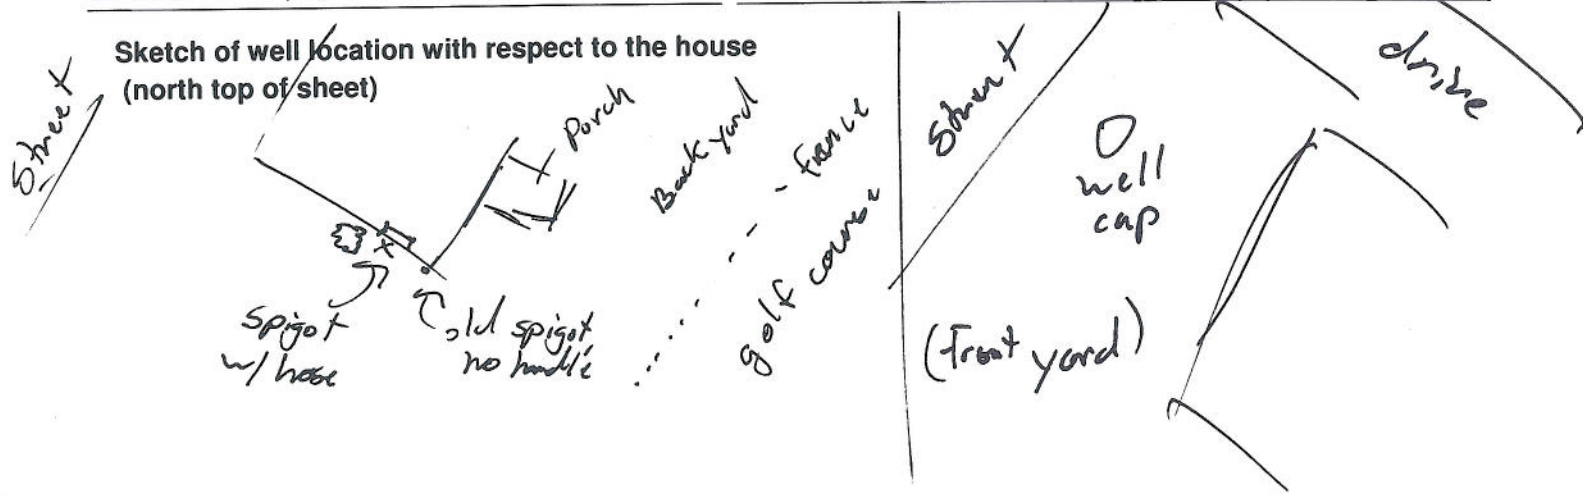 Sketch of well location with respect to the house
(north top of sheet)
Street
Porch
Back yard
Fence
golf course
spigot
w/ hose
old spigot
no handle
Street
drive
well
cap
(Front yard)